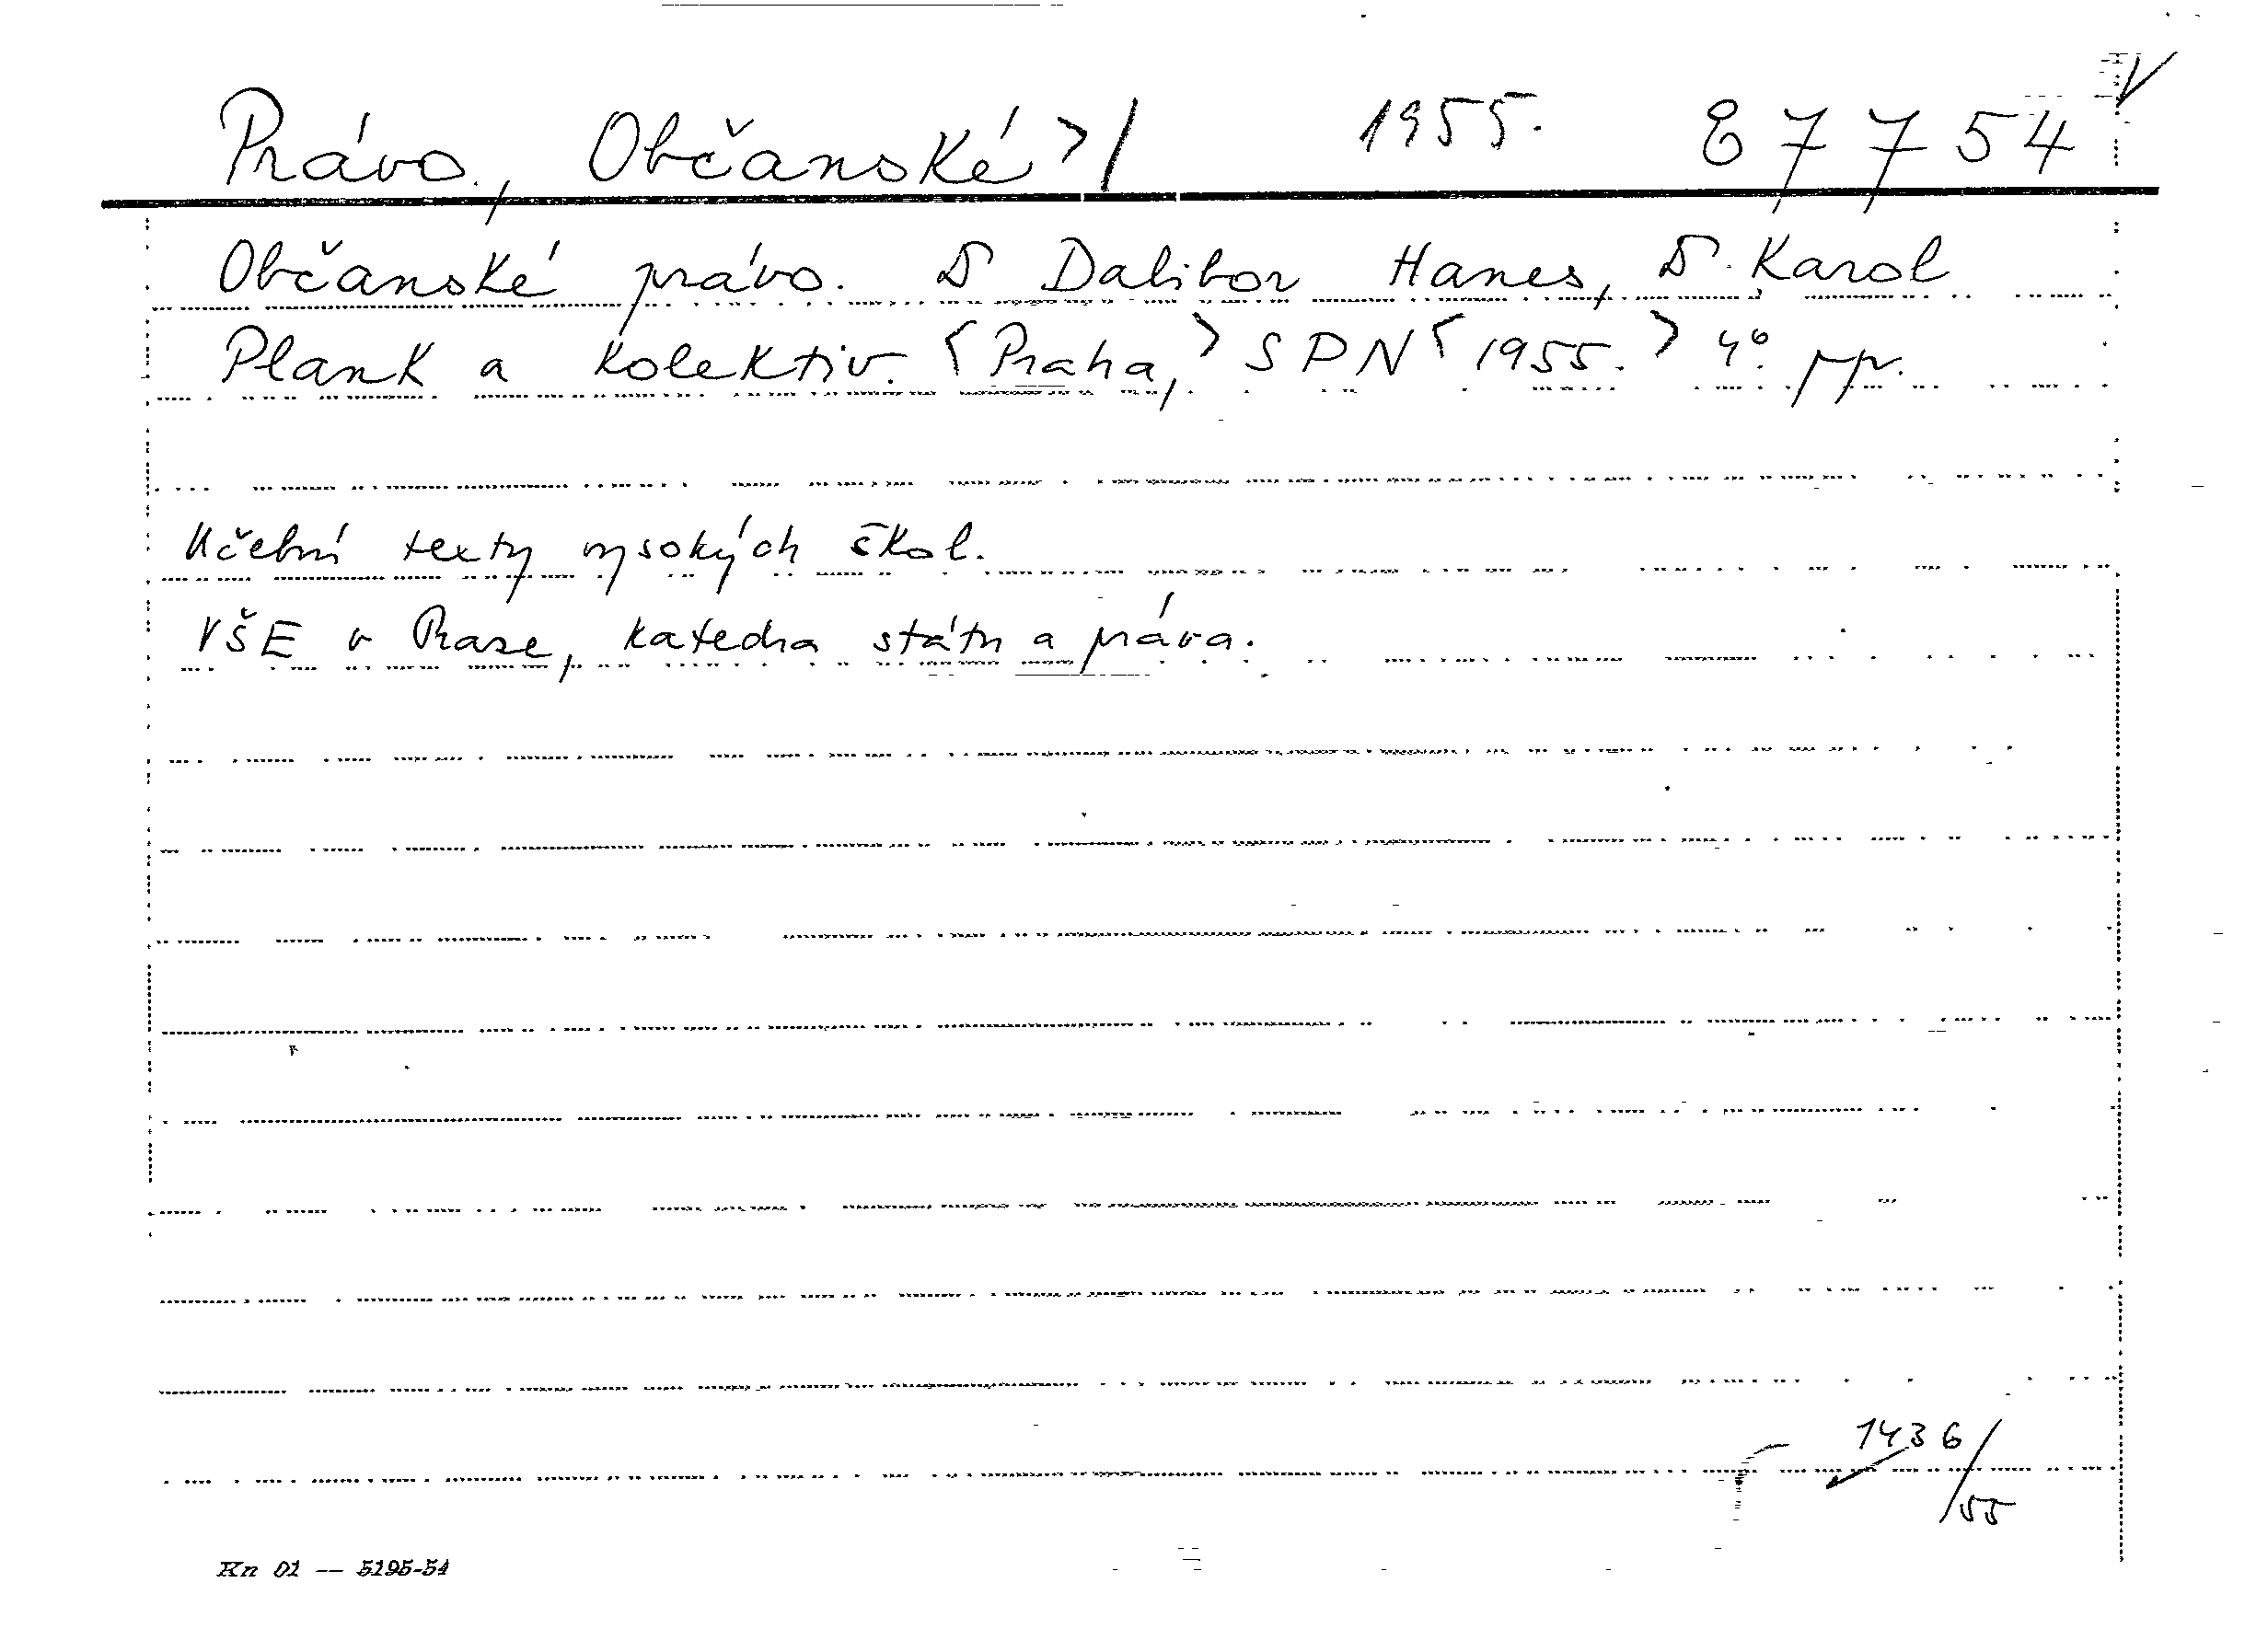 Právo, Občanské >/ 1955. 87754
Občanské právo. Dr Dalibor Hanes, Dr. Karol
Plank a kolektiv. <Praha,> SPN <1955.> 4° pp.
Učební texty vysokých škol.
VŠE v Praze, katedra státu a práva.
1436/55
Kn 01 — 5195-54